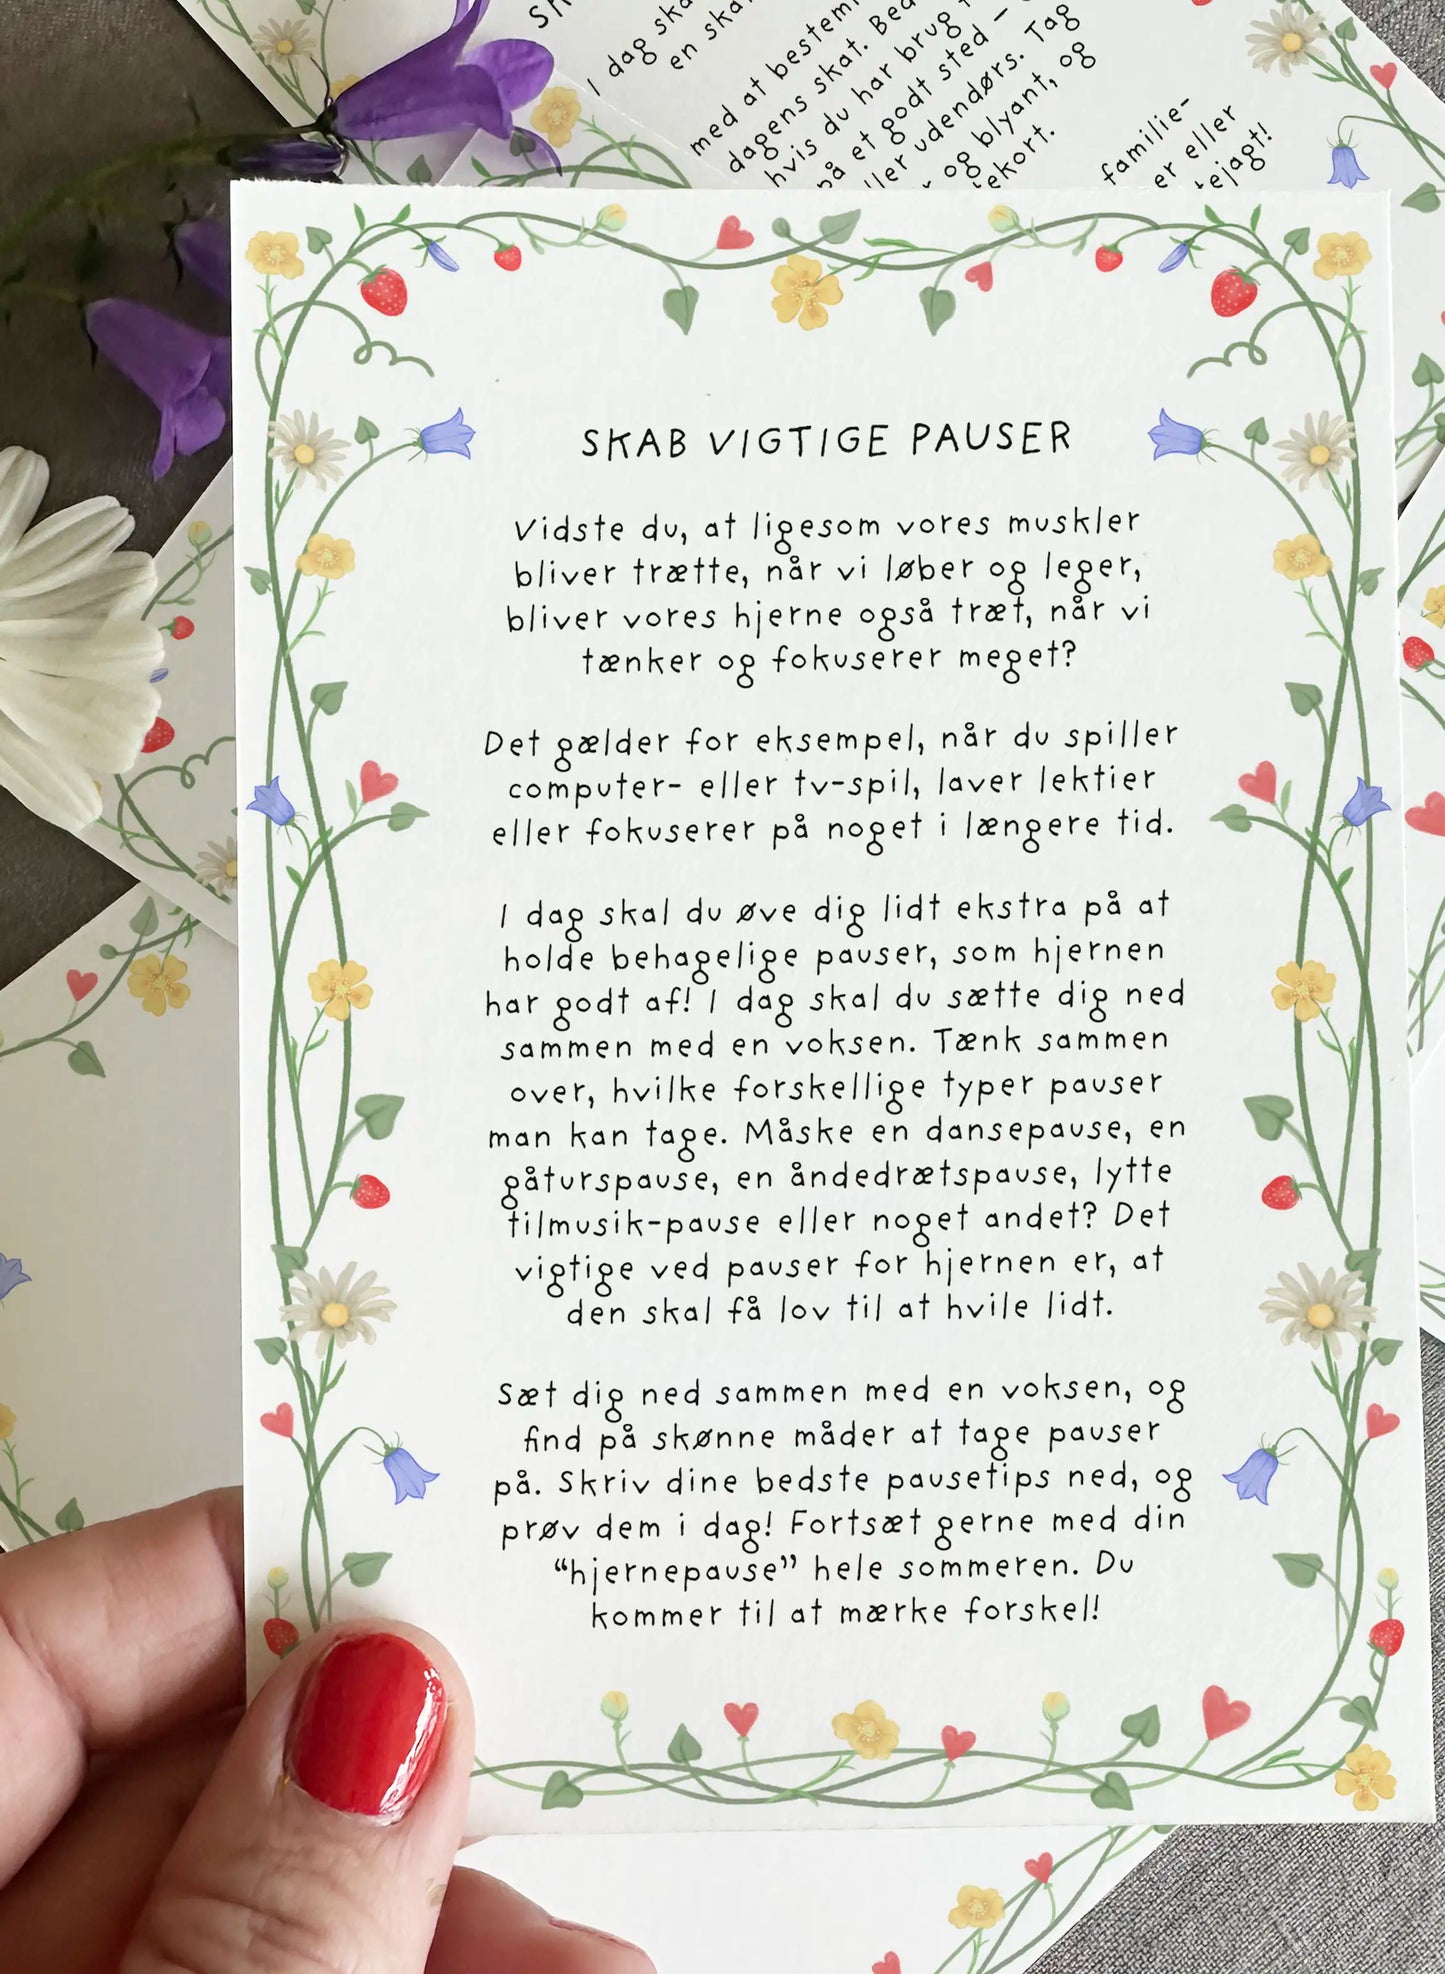 I dag ska
en ska
med at bestem
dagens skat. Bed
hvis du har brug
på et godt sted –
ller udendørs. Tag
og og blyant, og
tekort.
familie-
er eller
tejagt!
SKAB VIGTIGE PAUSER
Vidste du, at ligesom vores muskler
bliver trætte, når vi løber og leger,
bliver vores hjerne også træt, når vi
tænker og fokuserer meget?
Det gælder for eksempel, når du spiller
computer- eller tv-spil, laver lektier
eller fokuserer på noget i længere tid.
I dag skal du øve dig lidt ekstra på at
holde behagelige pauser, som hjernen
har godt af! I dag skal du sætte dig ned
sammen med en voksen. Tænk sammen
over, hvilke forskellige typer pauser
man kan tage. Måske en dansepause, en
gåturspause, en åndedrætspause, lytte
tilmusik-pause eller noget andet? Det
vigtige ved pauser for hjernen er, at
den skal få lov til at hvile lidt.
Sæt dig ned sammen med en voksen, og
find på skønne måder at tage pauser
på. Skriv dine bedste pausetips ned, og
prøv dem i dag! Fortsæt gerne med din
“hjernepause” hele sommeren. Du
kommer til at mærke forskel!